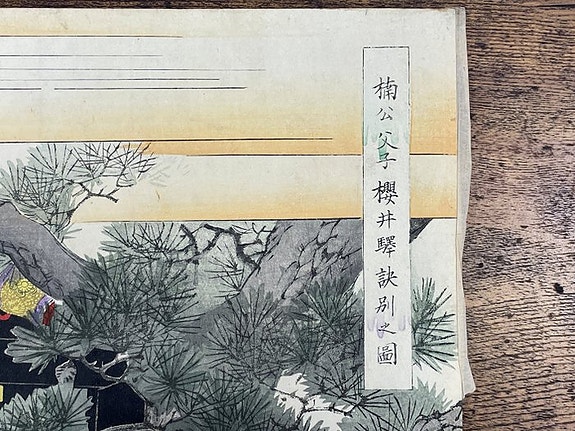 楠公父子櫻井驛訣別之圖